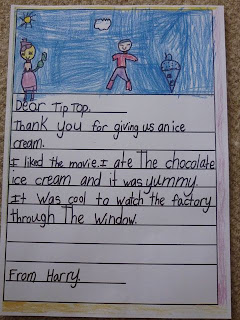 Dear Tip Top,
Thank you for giving us an ice
cream.
I liked the movie. I ate The chocolate
ice cream and it was yummy.
It was cool to watch the factory
through The window.
From Harry.